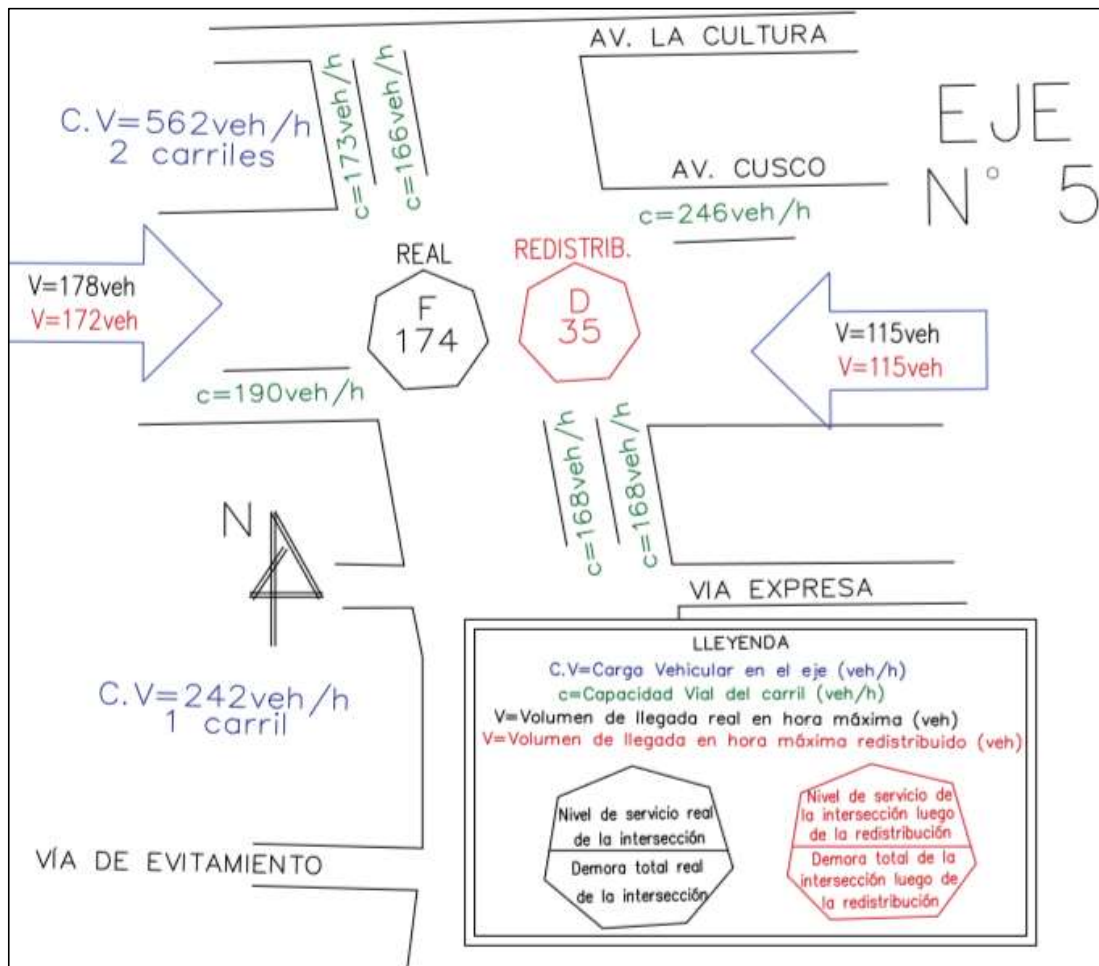 AV. LA CULTURA
EJE
N° 5
C.V=562veh/h
2 carriles
c=173veh/h
c=166veh/h
AV. CUSCO
c=246veh/h
REAL
REDISTRIB.
V=178veh
V=172veh
F
174
D
35
V=115veh
V=115veh
c=190veh/h
c=168veh/h
c=168veh/h
N
VIA EXPRESA
C.V=242veh/h
1 carril
LLEYENDA
C.V=Carga Vehicular en el eje (veh/h)
c=Capacidad Vial del carril (veh/h)
V=Volumen de llegada real en hora máxima (veh)
V=Volumen de llegada en hora máxima redistribuido (veh)
Nivel de servicio real
de la intersección
Demora total real
de la intersección
Nivel de servicio de
la intersección luego
de la redistribución
Demora total de la
intersección luego de
la redistribución
VÍA DE EVITAMIENTO